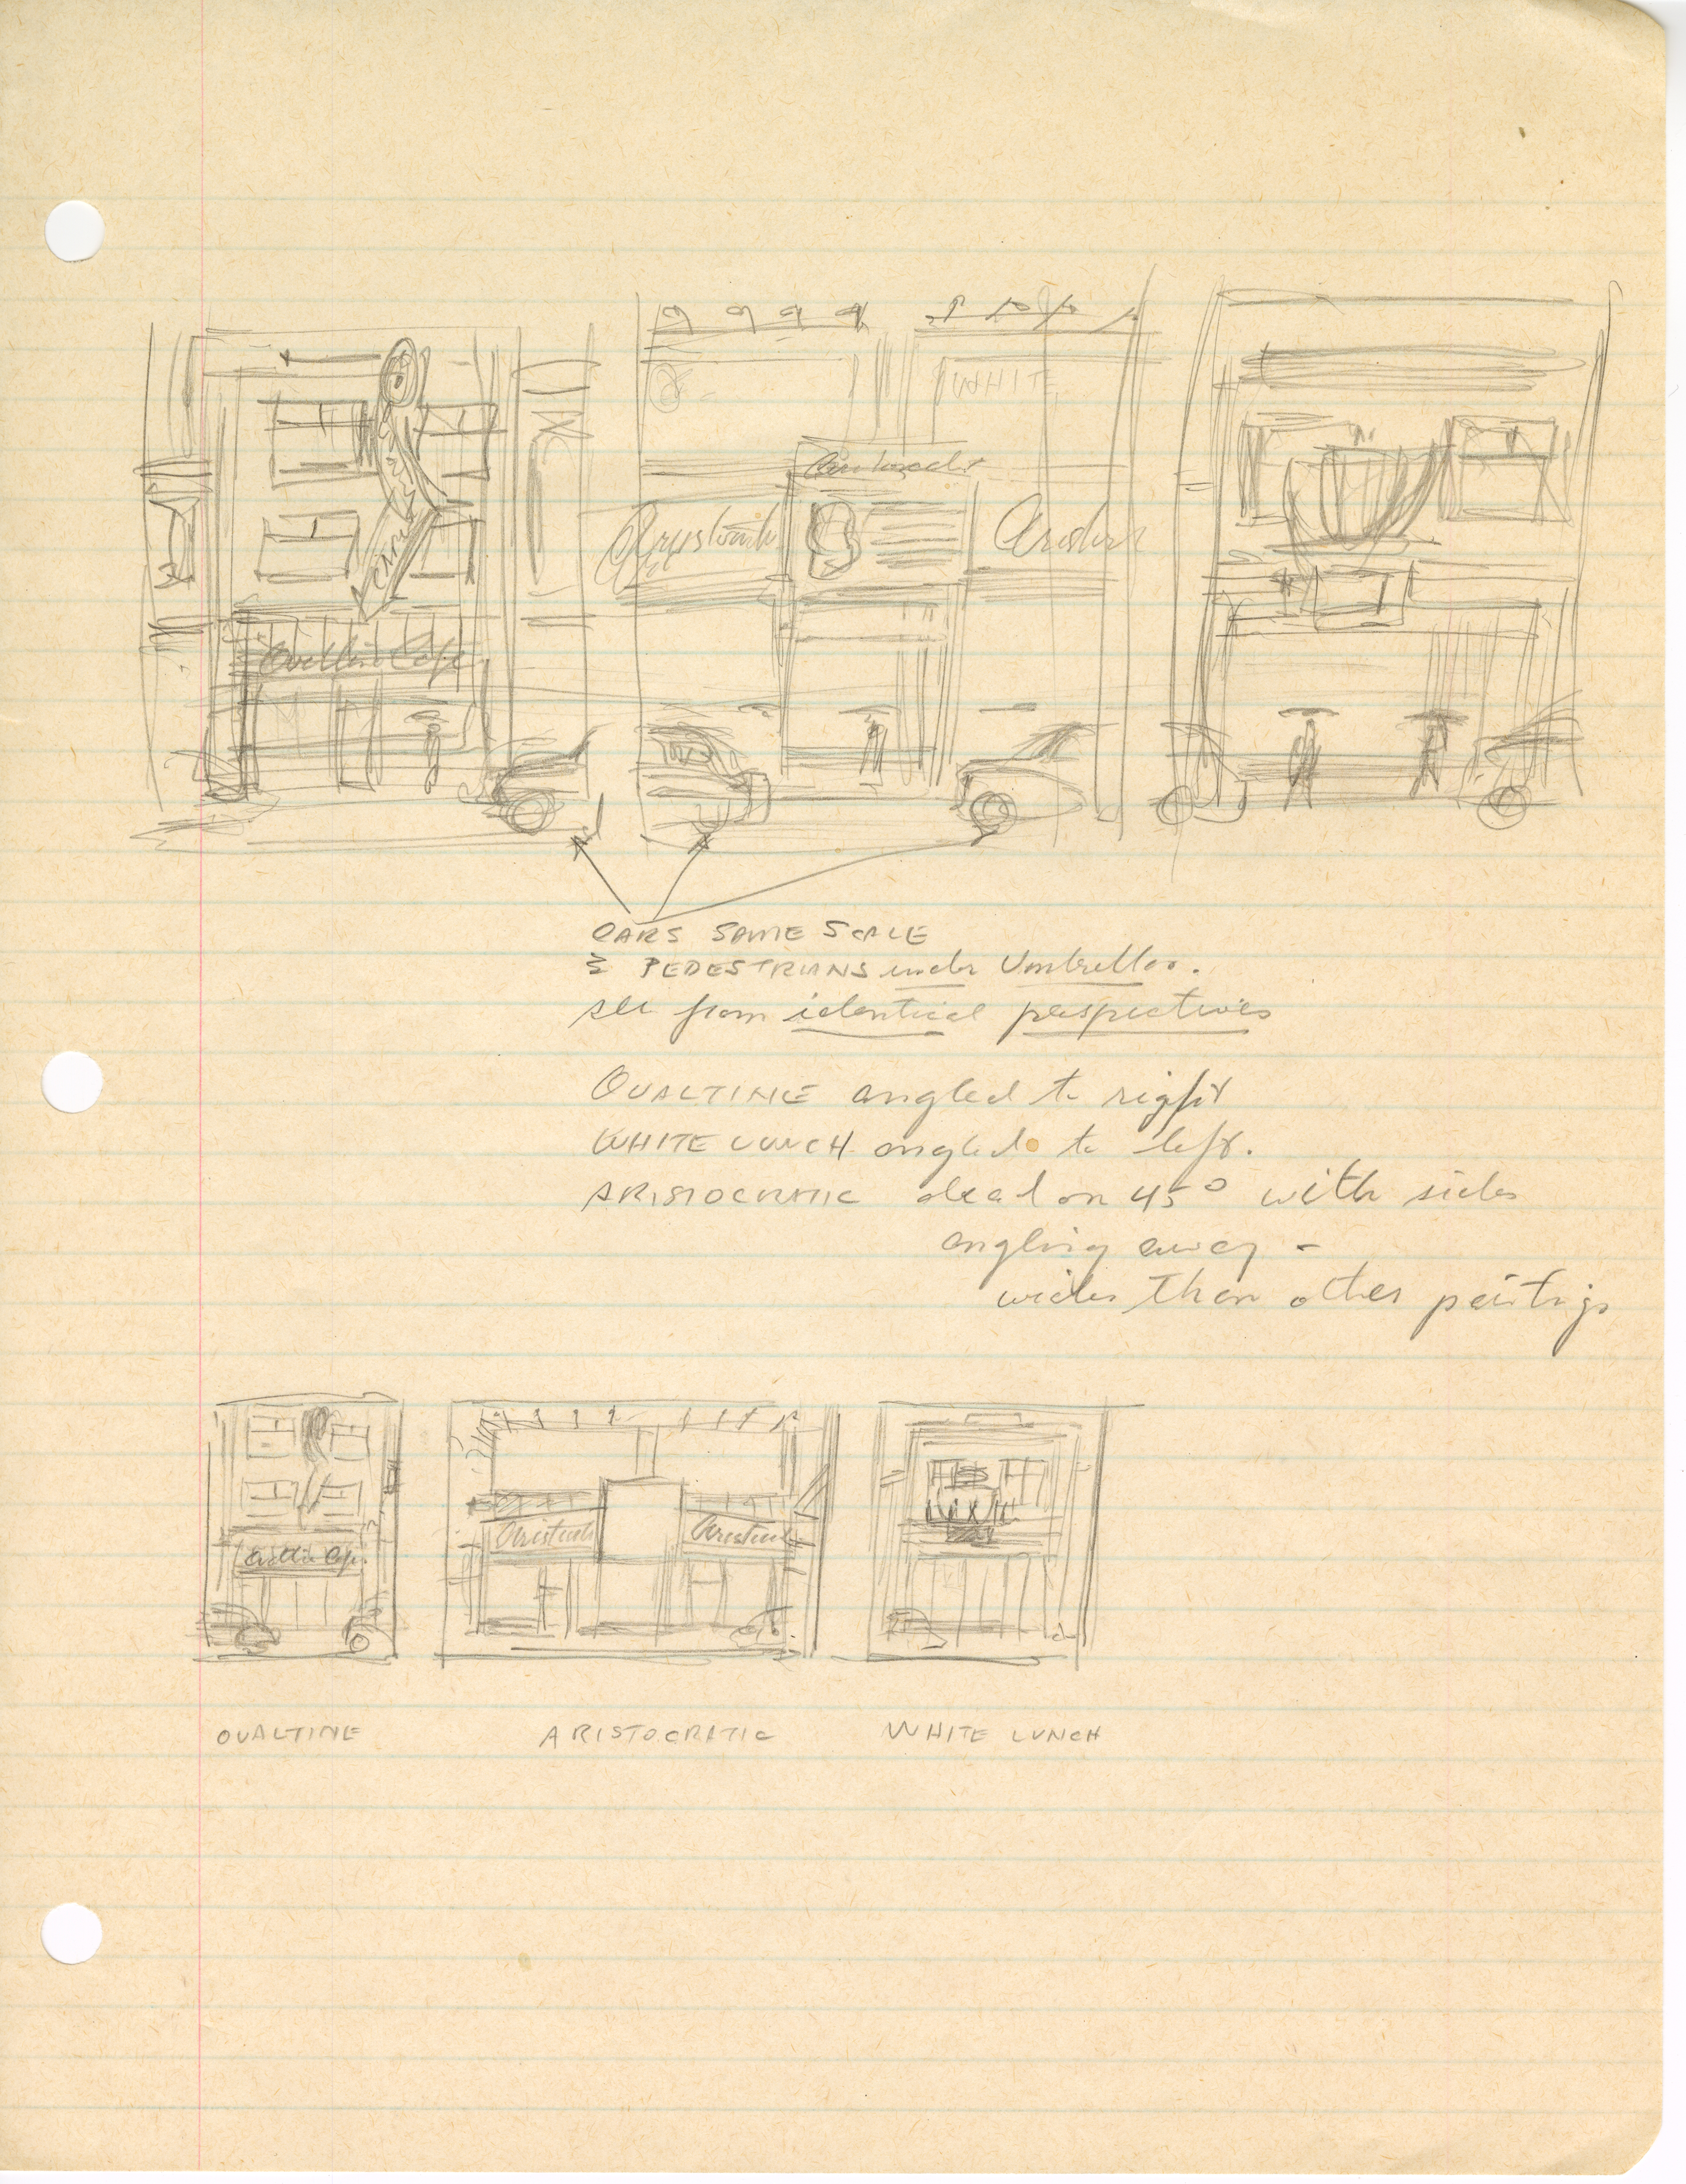 WHITE
Aristocratic
Aristocratic
CAFE
Ovaltine Cafe
CARS SAME SCALE
& PEDESTRIANS under Umbrellas.
see from identical perspectives
OVALTINE angled to right
WHITE LUNCH angled to left.
ARISTOCRATIC dead on 45° with sides
angling away -
wider than other paintings
Aristocratic
Aristocratic
Ovaltine Cafe
OVALTINE ARISTOCRATIC WHITE LUNCH